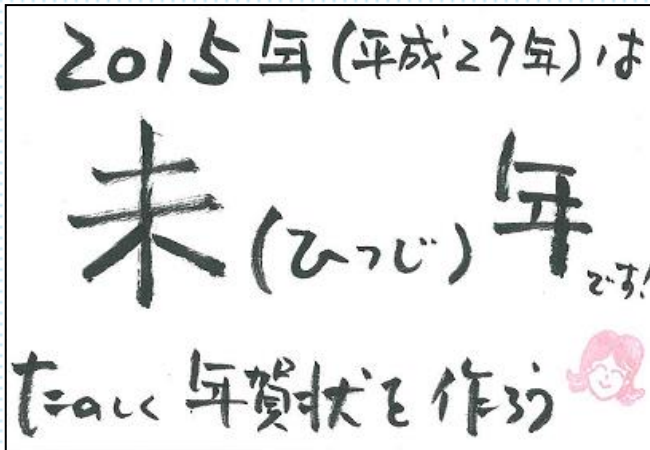 2015年(平成27年)は
未(ひつじ)年です!
たのしく年賀状を作ろう